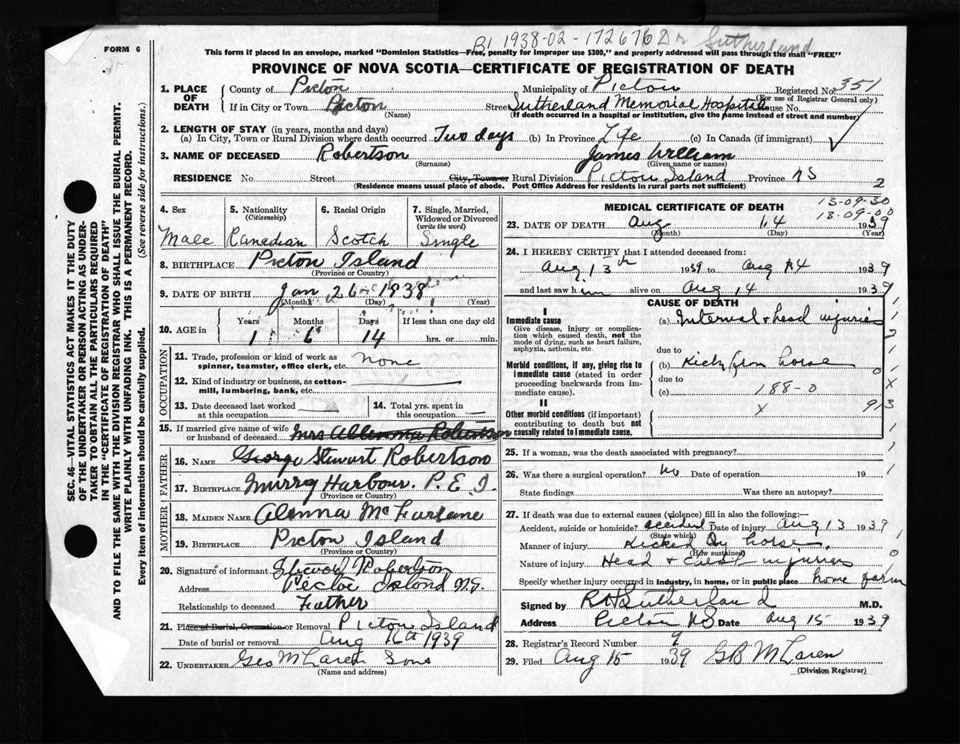 FORM 6
B1 1938-02-172676 Dr Sutherland
This form if placed in an envelope, marked "Dominion Statistics—Free, penalty for improper use $300," and properly addressed will pass through the mail "FREE"
PROVINCE OF NOVA SCOTIA—CERTIFICATE OF REGISTRATION OF DEATH
SEC. 46—VITAL STATISTICS ACT MAKES IT THE DUTY
OF THE UNDERTAKER OR PERSON ACTING AS UNDER-
TAKER TO OBTAIN ALL THE PARTICULARS REQUIRED
IN THE "CERTIFICATE OF REGISTRATION OF DEATH"
AND TO FILE THE SAME WITH THE DIVISION REGISTRAR WHO SHALL ISSUE THE BURIAL PERMIT.
WRITE PLAINLY WITH UNFADING INK. THIS IS A PERMANENT RECORD.
Every item of information should be carefully supplied. (See reverse side for instructions.)
1. PLACE OF DEATH
County of Picton Municipality of Picton Registered No. 351
(For use of Registrar General only)
If in City or Town Picton Street Sutherland Memorial Hospital House No.
(Name) (If death occurred in a hospital or institution, give the name instead of street and number)
2. LENGTH OF STAY (in years, months and days)
(a) In City, Town or Rural Division where death occurred Two days (b) In Province Life (c) In Canada (if immigrant)
3. NAME OF DECEASED Robertson James William
(Surname) (Given name or names)
RESIDENCE No Street City, Town or Rural Division Picton Island Province NS
(Residence means usual place of abode. Post Office Address for residents in rural parts not sufficient) 2
4. Sex Male
5. Nationality (Citizenship) Kanedian
6. Racial Origin Scotch
7. Single, Married, Widowed or Divorced (write the word) Single
8. BIRTHPLACE Picton Island
(Province or Country)
9. DATE OF BIRTH Jan 26 1938
(Month) (Day) (Year)
10. AGE in Years Months Days If less than one day old
1 6 14 hrs. or min.
OCCUPATION
11. Trade, profession or kind of work as spinner, teamster, office clerk, etc. none
12. Kind of industry or business, as cotton-mill, lumbering, bank, etc.
13. Date deceased last worked at this occupation
14. Total yrs. spent in this occupation
15. If married give name of wife or husband of deceased Mrs Robertson
FATHER
16. NAME George Stewart Robertson
17. BIRTHPLACE Murry Harbour. P.E.I.
(Province or Country)
MOTHER
18. MAIDEN NAME Alenna McFarlane
19. BIRTHPLACE Picton Island
(Province or Country)
20. Signature of informant Robertson
Address Island N.S.
Relationship to deceased Father
21. Place of Burial, Cremation or Removal Picton Island
Date of burial or removal Aug 16th 1939
22. UNDERTAKER Geo McLaren Sons
(Name and address)
MEDICAL CERTIFICATE OF DEATH
13-09-30
13-09-00
23. DATE OF DEATH Aug 14 1939
(Month) (Day) (Year)
24. I HEREBY CERTIFY that I attended deceased from:
Aug 13th 1939 to Aug 14 1939
and last saw him alive on Aug 14 1939
CAUSE OF DEATH
I
Immediate cause
Give disease, injury or complication which caused death, not the mode of dying, such as heart failure, asphyxia, asthenia, etc
(a) Internal & head injuries
due to
Morbid conditions, if any, giving rise to immediate cause (stated in order proceeding backwards from immediate cause).
(b) Kick from horse
due to
(c) 188-0
II
Other morbid conditions (if important) contributing to death but not causally related to immediate cause.
x 913
25. If a woman, was the death associated with pregnancy?
26. Was there a surgical operation? No Date of operation 19
State findings Was there an autopsy?
27. If death was due to external causes (violence) fill in also the following:
Accident, suicide or homicide? accident Date of injury Aug 13 1939
(State which)
Manner of injury Kicked by horse.
(How sustained)
Nature of injury Head & Chest injuries
Specify whether injury occurred in industry, in home, or in public place home farm
Signed by R H Sutherland M.D.
Address Picton NS Date Aug 15 1939
28. Registrar's Record Number 9
29. Filed Aug 15 1939 G B McLaren
(Division Registrar)